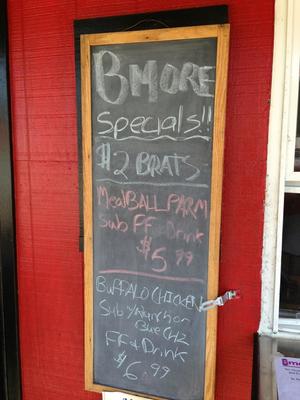 BMORE
Specials!!
$2 BRATS
MeatBALL PARM
Sub FF Drink
$5.99
BUFFALO CHICKEN
Sub w/Ranch or
Blue CHZ
FF + Drink
$6.99